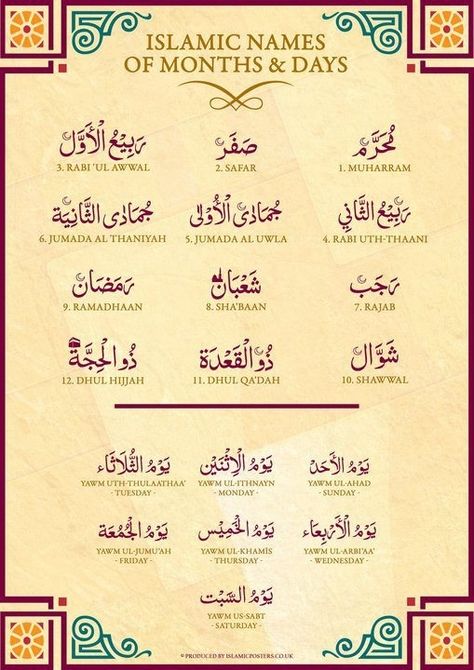 ISLAMIC NAMES
OF MONTHS & DAYS
مُحَرَّم
1. MUHARRAM
صَفَر
2. SAFAR
رَبِيعُ الْأَوَّل
3. RABI 'UL AWWAL
رَبِيعُ الثَّانِي
4. RABI UTH-THAANI
جُمَادَى الْأُوْلَى
5. JUMADA AL UWLA
جُمَادَى الثَّانِيَة
6. JUMADA AL THANIYAH
رَجَب
7. RAJAB
شَعْبَان
8. SHA'BAAN
رَمَضَان
9. RAMADHAAN
شَوَّال
10. SHAWWAL
ذُو الْقَعْدَة
11. DHUL QA'DAH
ذُو الْحِجَّة
12. DHUL HIJJAH
يَوْمُ الْأَحَد
YAWM UL-AHAD
- SUNDAY -
يَوْمُ الْاِثْنَيْن
YAWM UL-ITHNAYN
- MONDAY -
يَوْمُ الثُّلَاثَاء
YAWM UTH-THULAATHAA'
- TUESDAY -
يَوْمُ الْأَرْبِعَاء
YAWM UL-ARBI'AA'
- WEDNESDAY -
يَوْمُ الْخَمِيْس
YAWM UL-KHAMĪS
- THURSDAY -
يَوْمُ الْجُمُعَة
YAWM UL-JUMU'AH
- FRIDAY -
يَوْمُ السَّبْت
YAWM US-SABT
- SATURDAY -
© PRODUCED BY ISLAMICPOSTERS.CO.UK